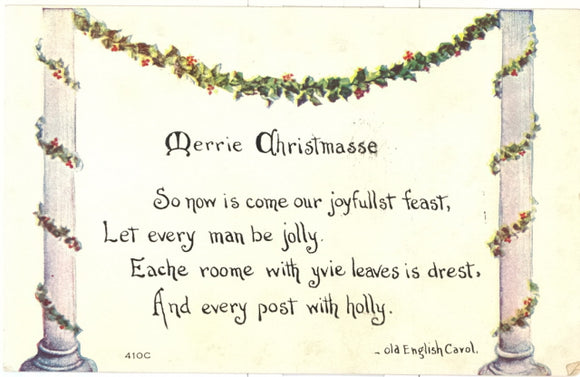 Merrie Christmasse
So now is come our joyfullst feast,
Let every man be jolly.
Eache roome with yvie leaves is drest,
And every post with holly.
- old English Carol.
410C